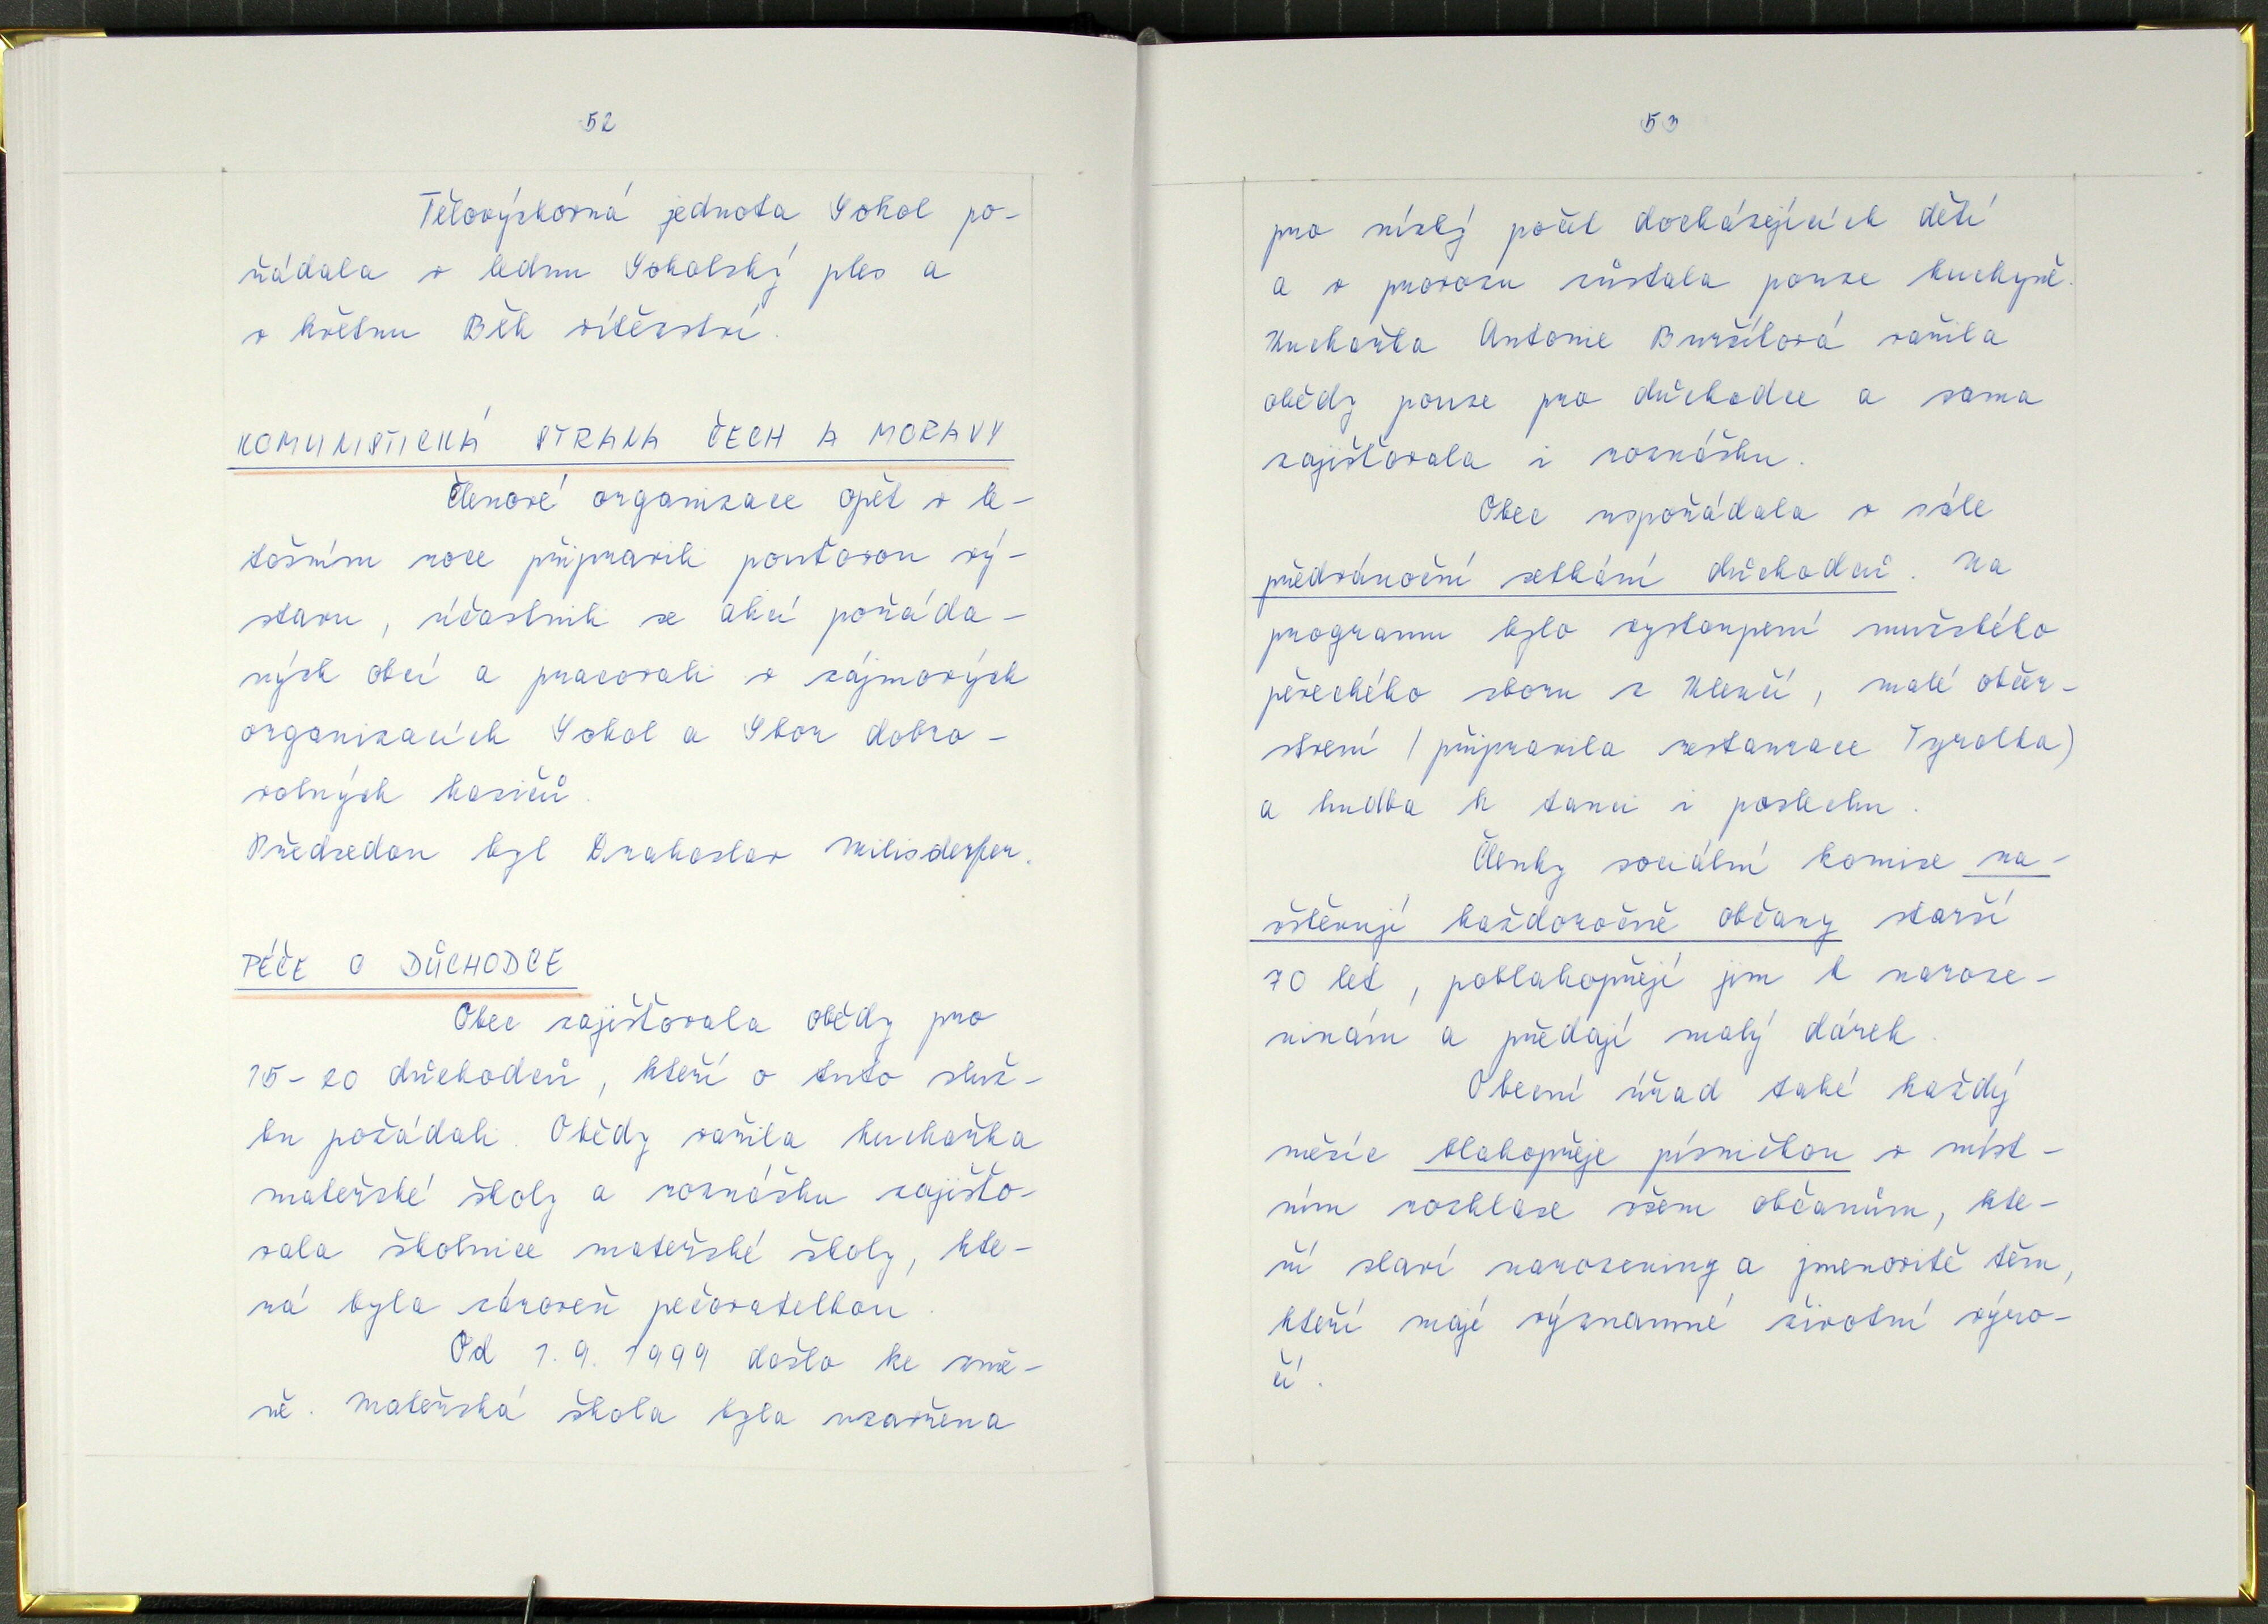 52
Tělovýchovná jednota Sokol po-
řádala v lednu Sokolský ples a
v květnu Běh vítězství.
KOMUNISTICKÁ STRANA ČECH A MORAVY
Členové organizace opět v le-
tošním roce připravili pouťovou vý-
stavu, účastnili se akcí pořáda-
ných obcí a pracovali v zájmových
organizacích Sokol a Sbor dobro-
volných hasičů.
Předsedou byl Drahoslav Milisderfer.
PÉČE O DŮCHODCE
Obec zajišťovala obědy pro
15-20 důchodců, kteří o tuto služ-
bu požádali. Obědy vařila kuchařka
mateřské školy a roznášku zajišťo-
vala školnice mateřské školy, kte-
rá byla zároveň pečovatelkou.
Od 1.9.1999 došlo ke změ-
ně. Mateřská škola byla uzavřena
53
pro nízký počet docházejících dětí
a v provozu zůstala pouze kuchyně.
Kuchařka Antonie Buršíková vařila
obědy pouze pro důchodce a sama
zajišťovala i roznášku.
Obec uspořádala v sále
předvánoční setkání důchodců. Na
programu bylo vystoupení mužského
pěveckého sboru z Klenčí, malé občer-
stvení (připravila restaurace Tyrolka)
a hudba k tanci i poslechu.
Členky sociální komise na-
vštěvují každoročně občany starší
70 let, poblahopřejí jim k naroze-
ninám a předají malý dárek.
Obecní úřad také každý
měsíc blahopřeje písničkou v míst-
ním rozhlase všem občanům, kte-
ří slaví narozeniny a jmenovitě těm,
kteří mají významné životní výro-
čí.